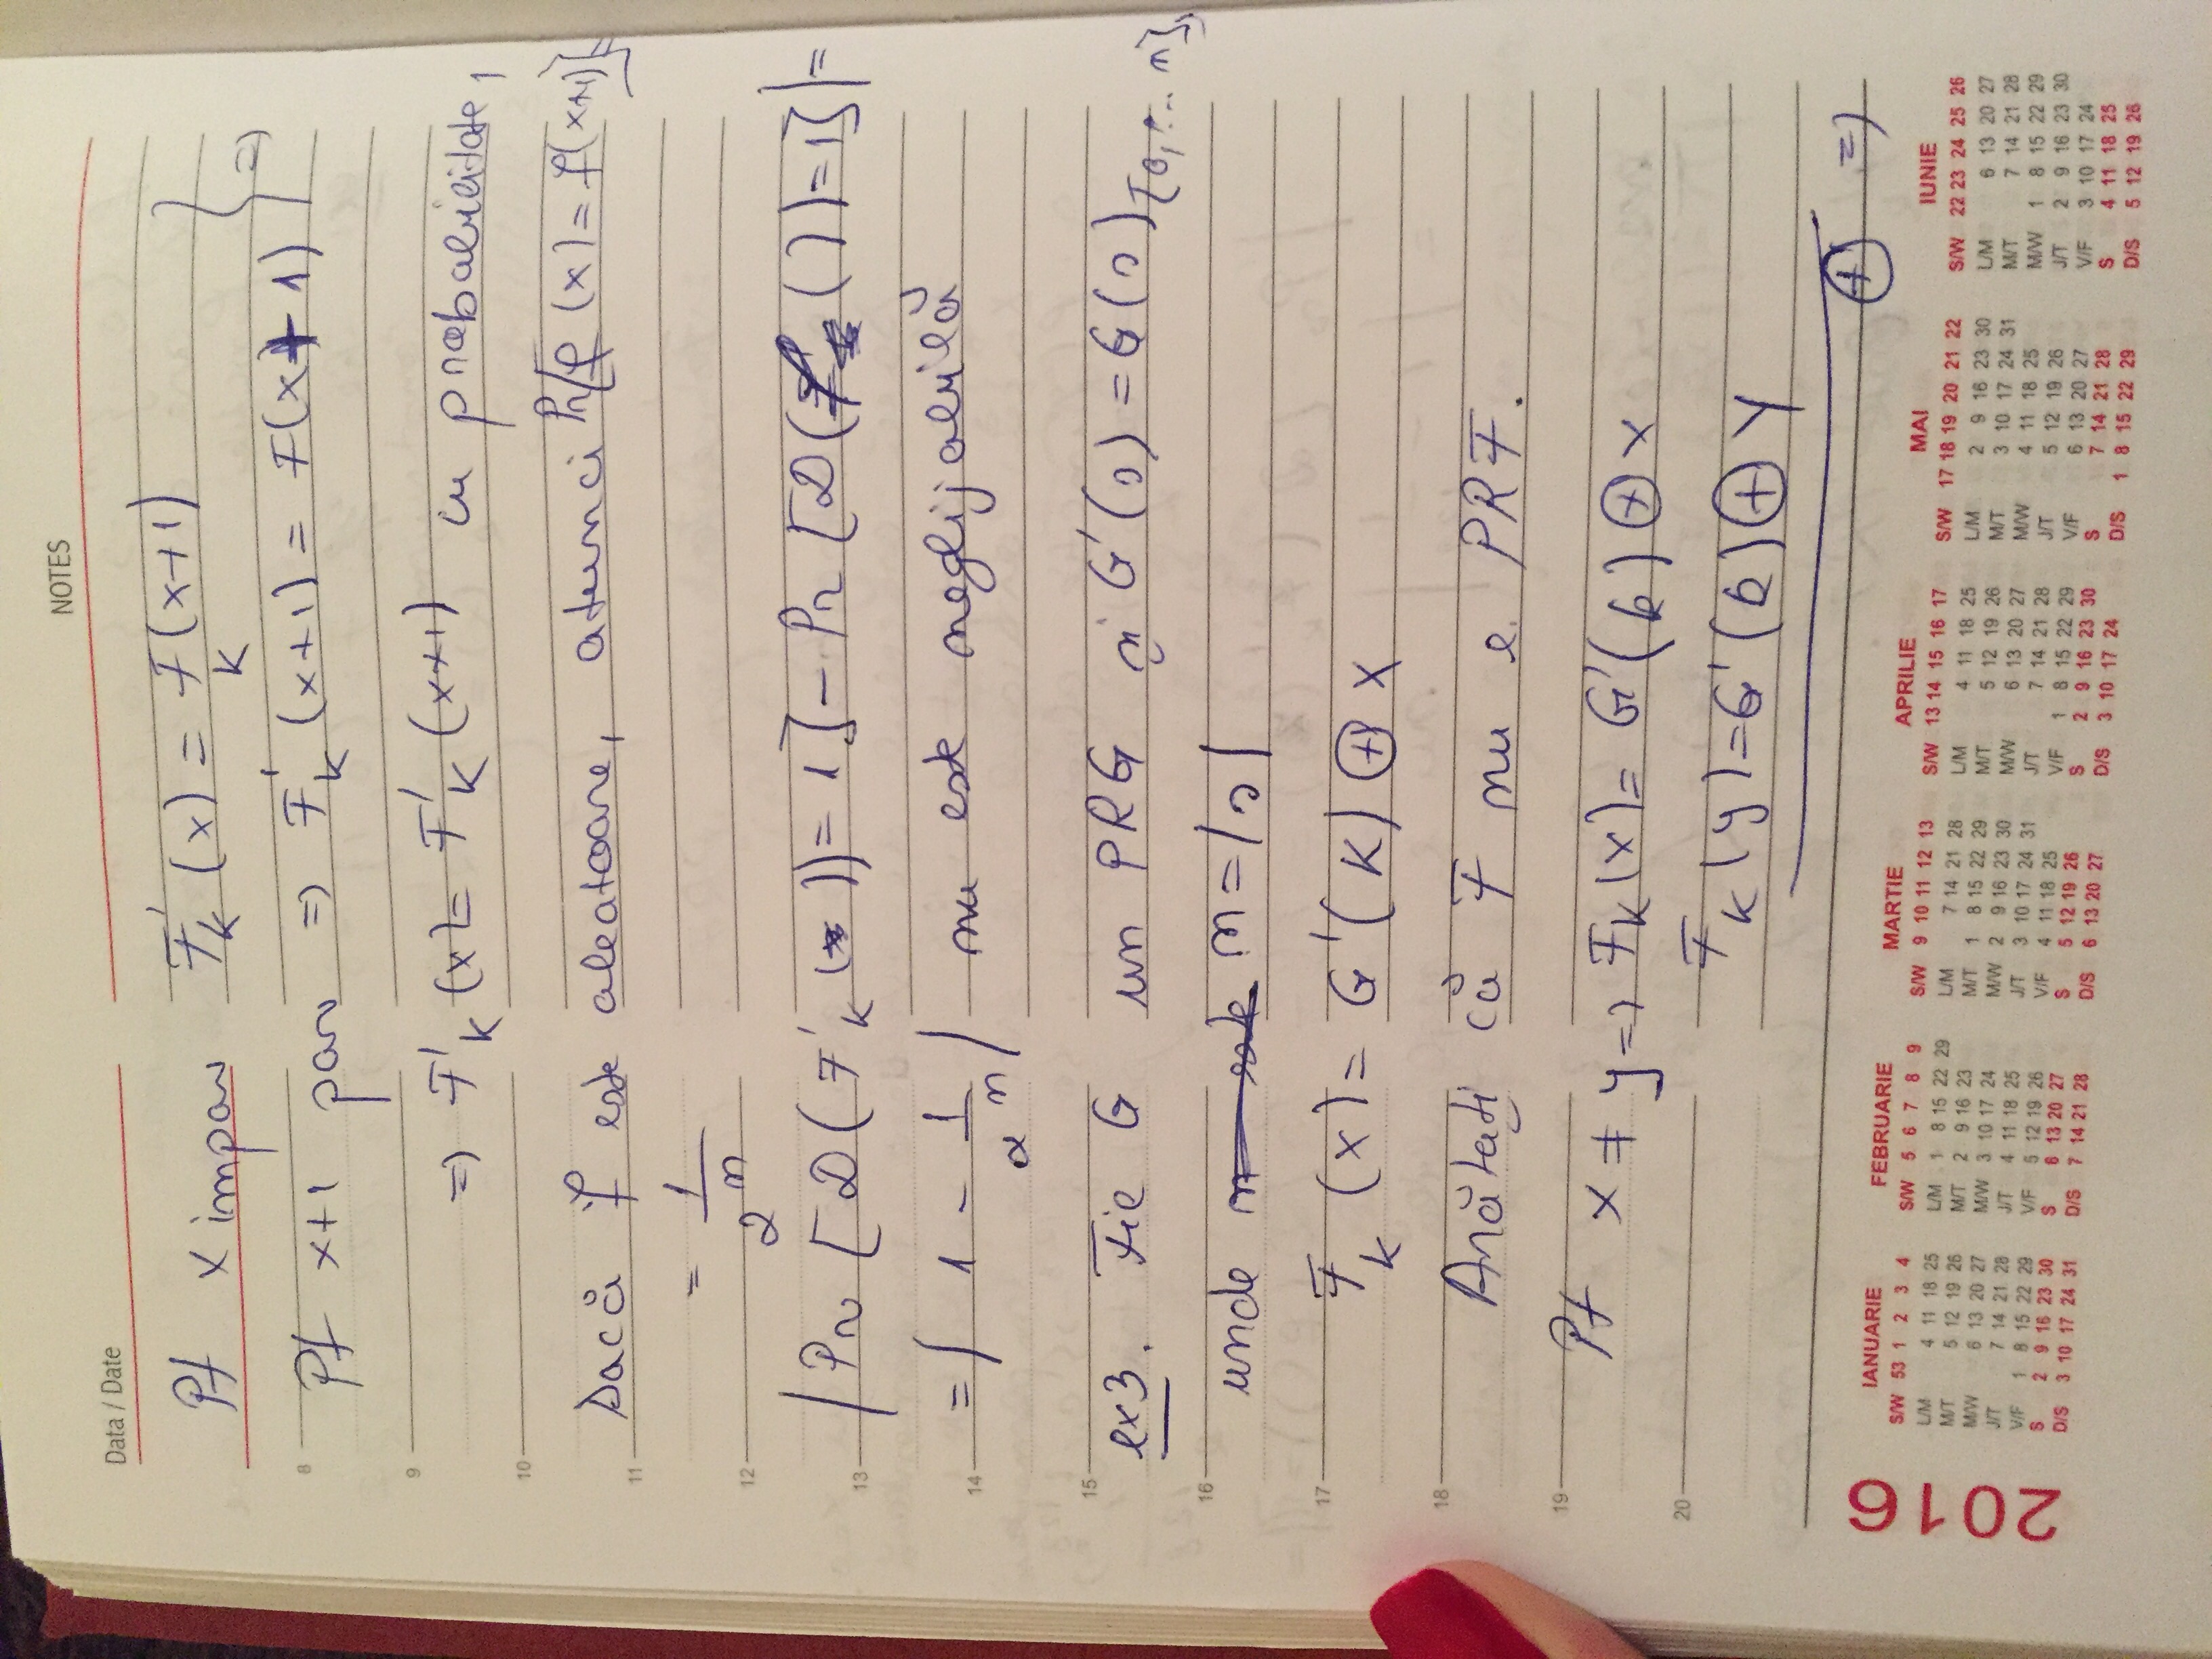 NOTES
Data / Date
Pt x impar F'k (x) = Fk(x+1)
Pt x+1 par => F'k (x+1) = F(x+1) } =>
=> F'k (x) = F'k (x+1) cu probabilitate 1
Dacă f este aleatoare, atunci Pr[f(x) = f(x+1)] =
= 1/2^n
|Pr [D(F'k ( ))= 1] - Pr [D(f ( ))=1]| =
= | 1 - 1/2^n | nu este neglijabilă
ex3. Fie G un PRG și G'(s) = G(s){0,... n},
unde n = |s|
Fk (x) = G'(k) ⊕ x
Arătați că F nu e PRF.
Pt x ≠ y => Fk(x) = G'(k) ⊕ x
Fk(y) = G'(k) ⊕ y
⊕ =>
8
9
10
11
12
13
14
15
16
17
18
19
20
2016
IANUARIE
S/W 53 1 2 3 4
L/M 4 11 18 25
M/T 5 12 19 26
M/W 6 13 20 27
J/T 7 14 21 28
V/F 1 8 15 22 29
S 2 9 16 23 30
D/S 3 10 17 24 31
FEBRUARIE
S/W 5 6 7 8 9
L/M 1 8 15 22 29
M/T 2 9 16 23
M/W 3 10 17 24
J/T 4 11 18 25
V/F 5 12 19 26
S 6 13 20 27
D/S 7 14 21 28
MARTIE
S/W 9 10 11 12 13
L/M 7 14 21 28
M/T 1 8 15 22 29
M/W 2 9 16 23 30
J/T 3 10 17 24 31
V/F 4 11 18 25
S 5 12 19 26
D/S 6 13 20 27
APRILIE
S/W 13 14 15 16 17
L/M 4 11 18 25
M/T 5 12 19 26
M/W 6 13 20 27
J/T 7 14 21 28
V/F 1 8 15 22 29
S 2 9 16 23 30
D/S 3 10 17 24
MAI
S/W 17 18 19 20 21 22
L/M 2 9 16 23 30
M/T 3 10 17 24 31
M/W 4 11 18 25
J/T 5 12 19 26
V/F 6 13 20 27
S 7 14 21 28
D/S 1 8 15 22 29
IUNIE
S/W 22 23 24 25 26
L/M 6 13 20 27
M/T 7 14 21 28
M/W 1 8 15 22 29
J/T 2 9 16 23 30
V/F 3 10 17 24
S 4 11 18 25
D/S 5 12 19 26